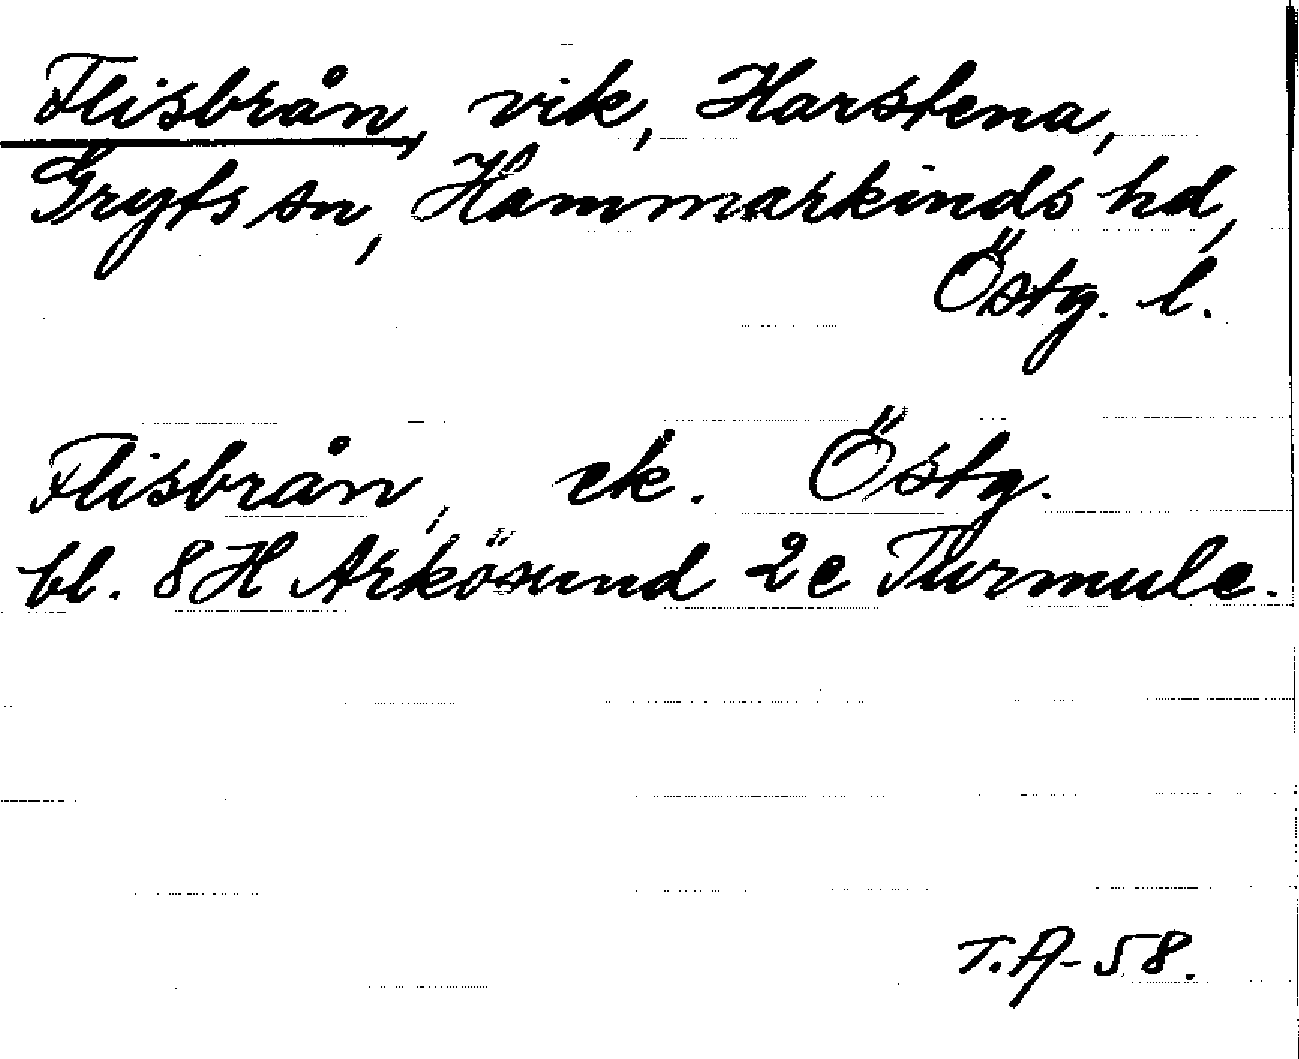 Flisbrån, vik, Harstena,
Gryts sn, Hammarkinds hd,
Östg. l.
Flisbrån, ek. Östg.
bl. 8H Arkösund 2e Turmule.
T.A-58.